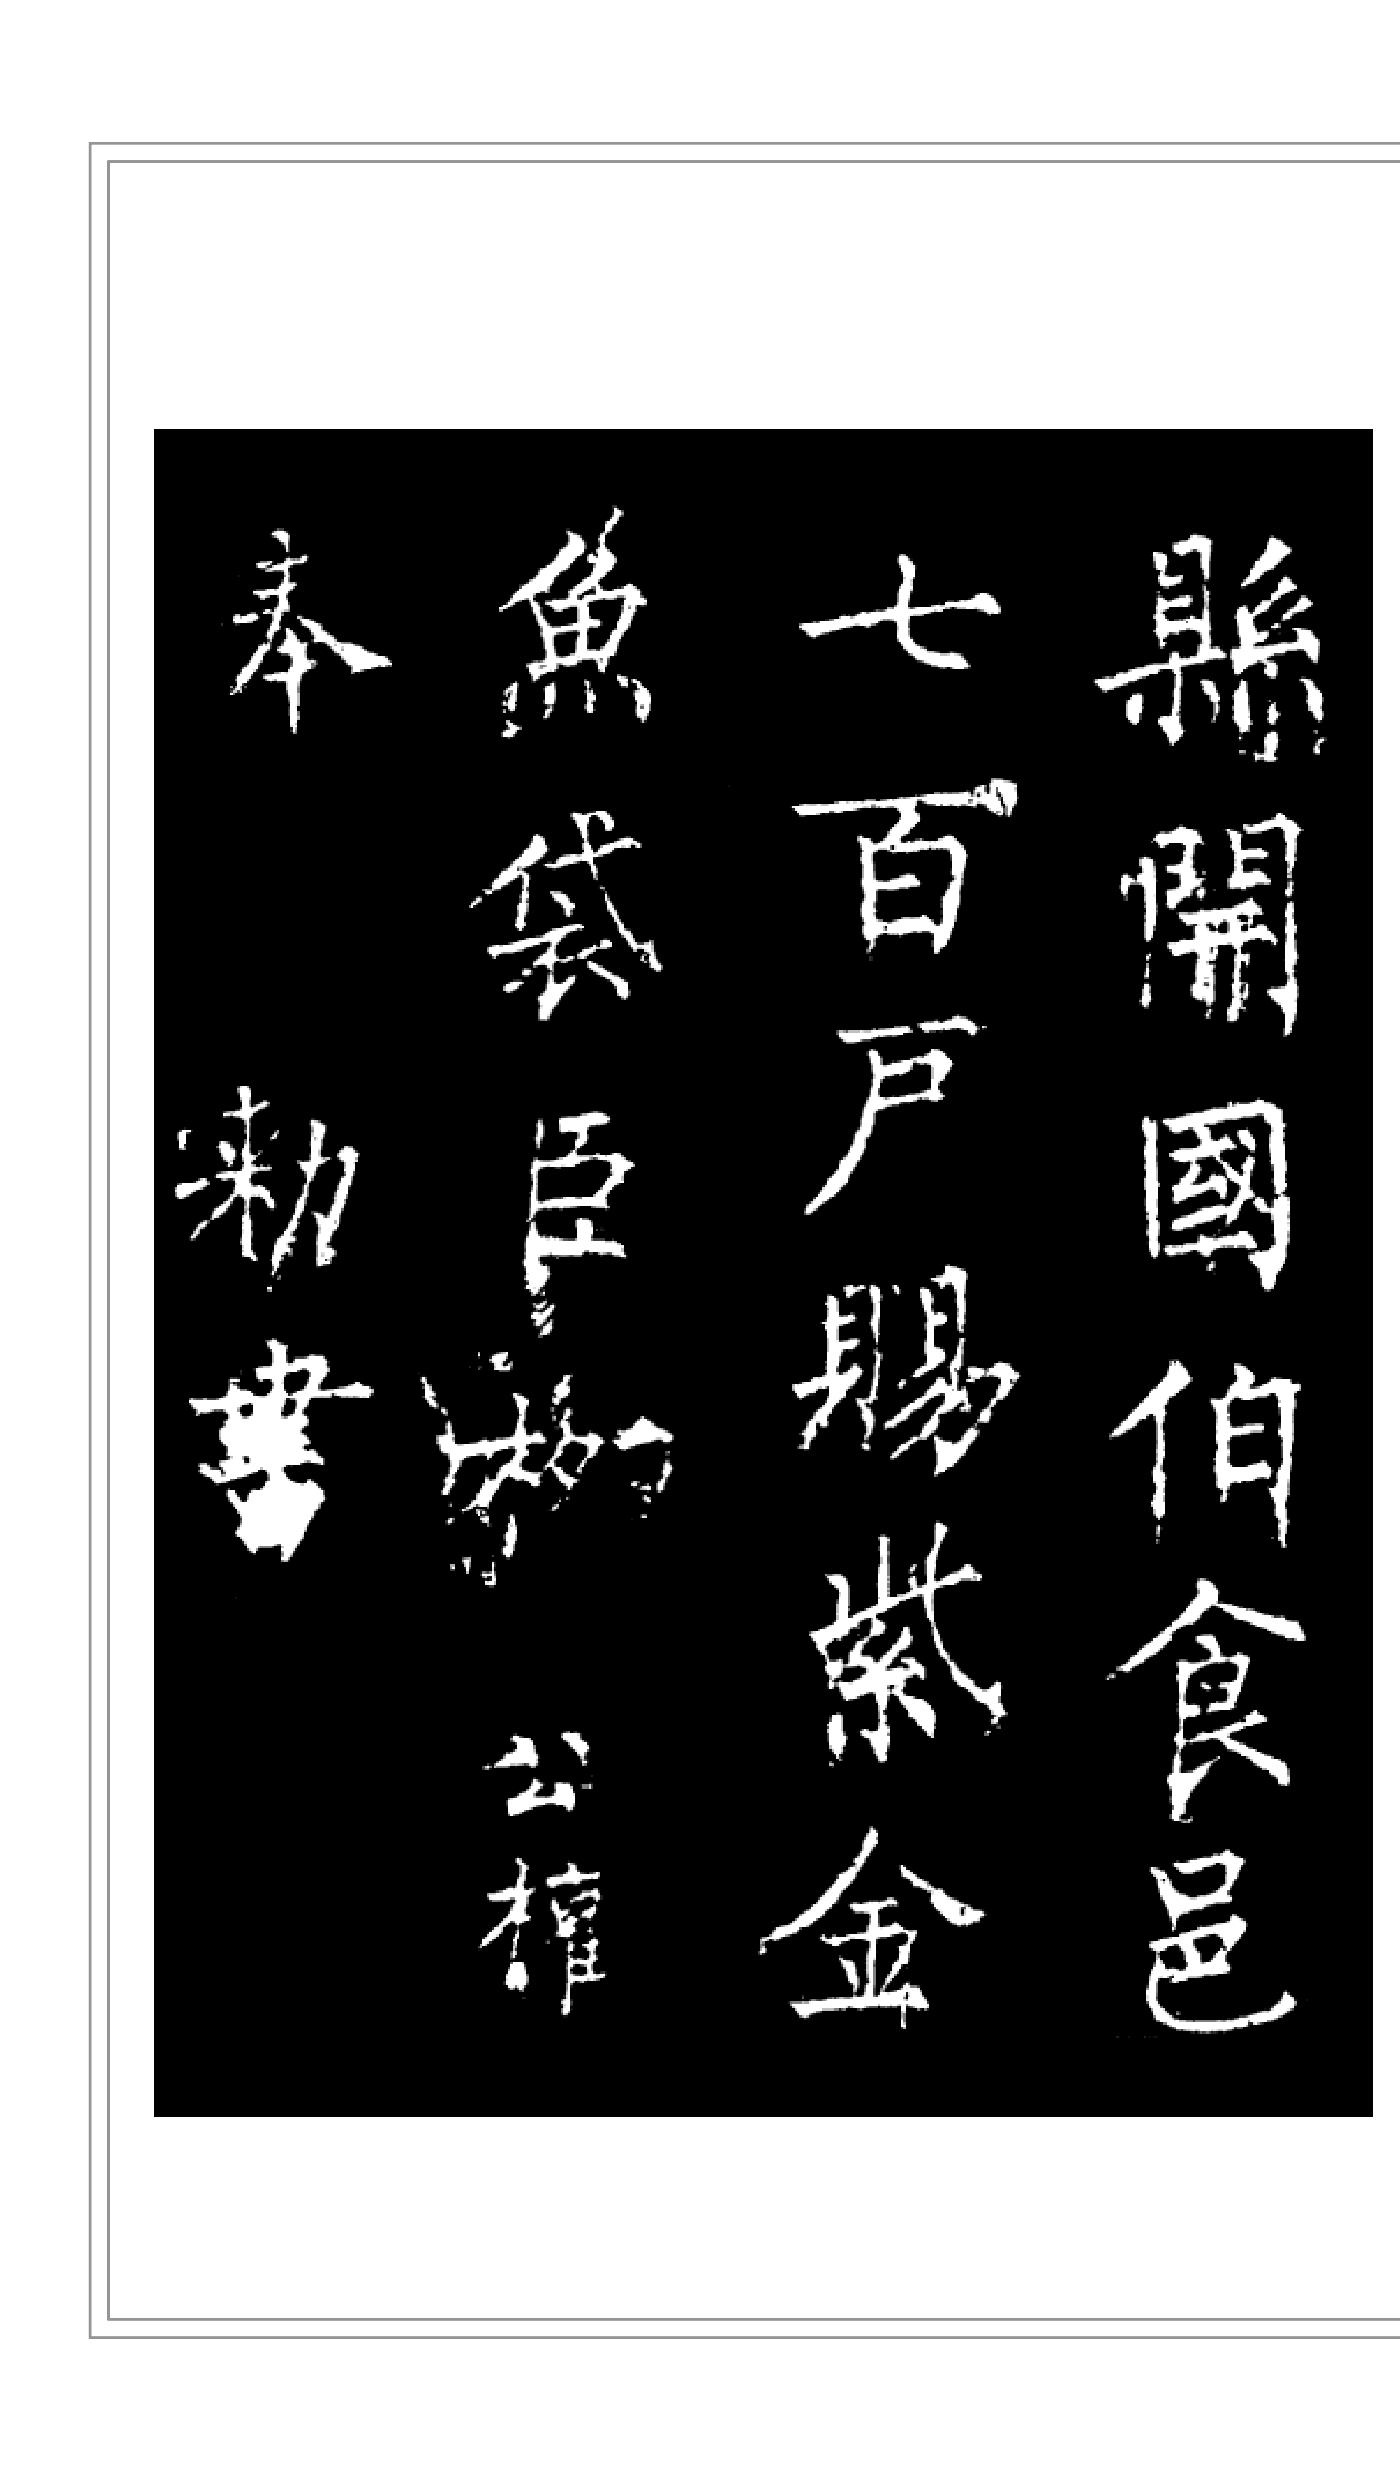 縣開國伯食邑
七百戶賜紫金
魚袋臣柳公權
奉勑書